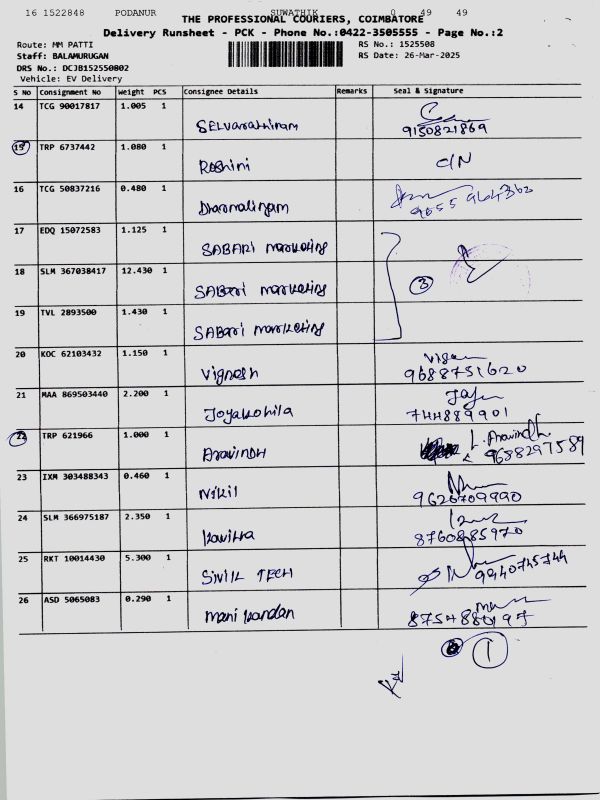 16 1522848 PODANUR SUWATHIK 0 49 49
THE PROFESSIONAL COURIERS, COIMBATORE
Delivery Runsheet - PCK - Phone No.:0422-3505555 - Page No.:2
Route: MM PATTI RS No.: 1525508
Staff: BALAMURUGAN RS Date: 26-Mar-2025
DRS No.: DCJB152550802
Vehicle: EV Delivery
S No Consignment No Weight PCS Consignee Details Remarks Seal & Signature
14 TCG 90017817 1.005 1
Selvarathinam 9150821869
15 TRP 6737442 1.080 1
Roshini C/N
16 TCG 50837216 0.480 1
Dharmalingam 9655964360
17 EDQ 15072583 1.125 1
SABARI marketing
18 SLM 367038417 12.430 1
SABARI marketing 3
19 TVL 2893500 1.430 1
SABARI marketing
20 KOC 62103432 1.150 1
Vignesh 9688751620
21 MAA 869503440 2.200 1
Joyakohila 744889901
22 TRP 621966 1.000 1 L. Aravindh
Aravindh 9688297589
23 IXM 303488343 0.460 1
Nikil 9626709990
24 SLM 366975187 2.350 1
Kavitha 8760885970
25 RKT 10014430 5.300 1
TECH 9940745744
26 ASD 5065083 0.290 1
Mani Kandan 8754880197
1